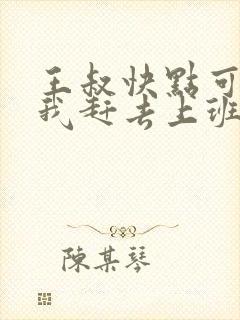 王叔快點可
我赶去上班
陳某琴